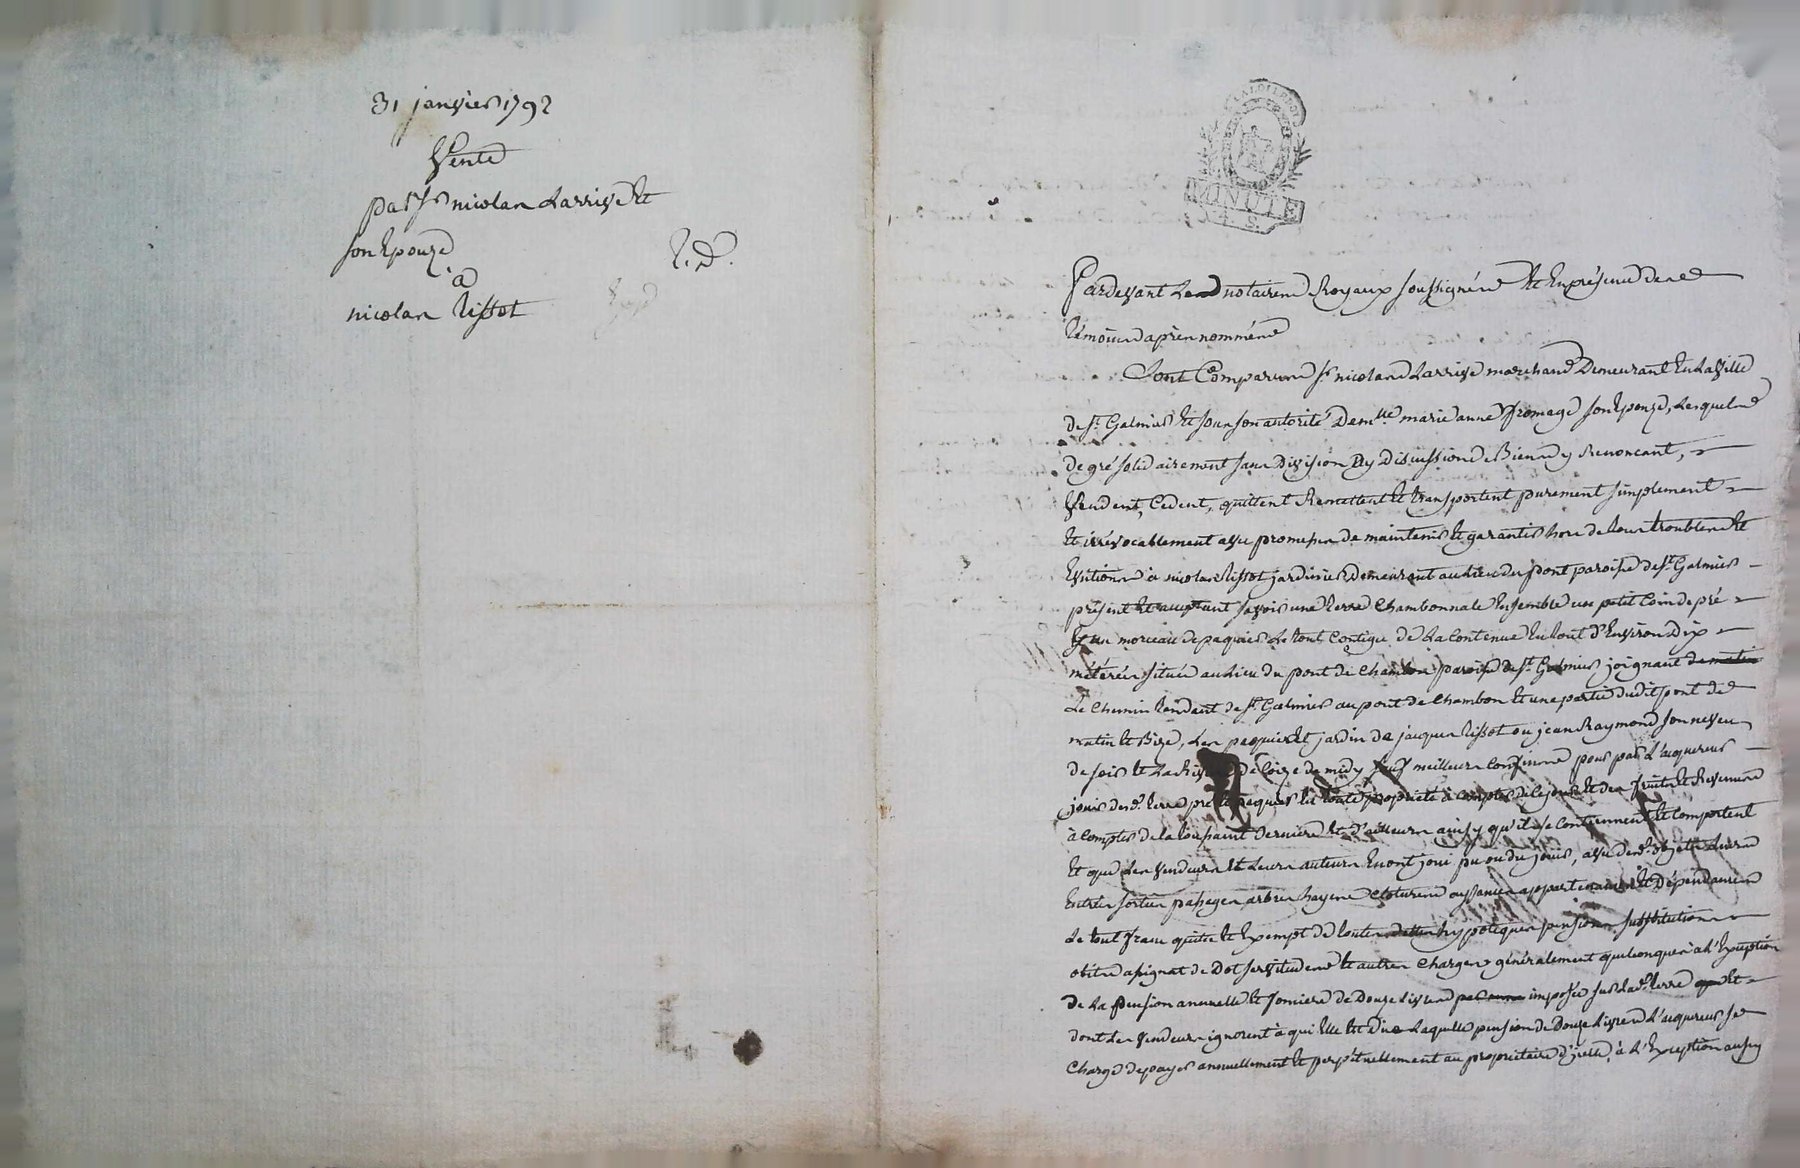 31 janvier 1792
Vente
par Sr nicolas Larrivé et
son Epouze
à
nicolas tissot
MINUTE
4. S.
Pardevant Les notaires Royaux soussignés et En présence des
témoins aprés nommés
Sont Comparus Sr nicolas Larrivé marchand Demeurant En La Ville
de St. Galmier et sous son autorité Demlle marie anne fromage son Epouze, Lesquels
de gré solidairement sans Division Ny Discussion de Biens y Renoncant,
Vendent, Cedent, quittent Remettent et transportent purement simplement
et irrévocablement avec promesse de maintenir et garantir hors de tous troubles et
Evictions à nicolas tissot jardinier demeurant au lieu du pont paroisse de St. Galmier
présent et acceptant savoir une terre Chambonnale Ensemble un petit Coin de pré
Et un morceau de paquier Le tout Contigu de La Contenue En tout d'Environ Dix
méterées situés au lieu du pont de Chambon paroisse de St. Galmier joignant de matin
Le Chemin tendant de St. Galmier au pont de Chambon et une partie dudit pont de
matin et Bize, Les paquier et jardin de jacques tissot ou jean Raymond son neveu
de soir et La Riviere de Coize de midy sauf meilleurs Confins pour par L'acquereur
jouir des d. terre pré et paquier en toute propriété à compter de ce jour et des fruits et Revenus
à compter de la toussaint derniere et d'ailleurs ainsy qu'ils se Contiennent et Comportent
Et que Les Vendeurs et Leurs auteurs En ont joui pu ou du jouir, avec des d. objets Leurs
Entrées sorties passages arbres hayes Clotures aysances appartenances et Dépendances
Le tout franc quitte et Exempt de toutes dettes hypoteques pensions substitutions
obits assignat de Dot servitudes et autres Charges généralement quelconques à L'Exception
De La pension annuelle et fonciere de Douze Livres imposée sur La d. terre et
dont Les Vendeurs ignorent à qui Elle Est Due Laquelle pension de Douze Livres L'acquereur se
Charge de payer annuellement et perpétuellement au proprietaire d'icelle, à L'Exception aussy